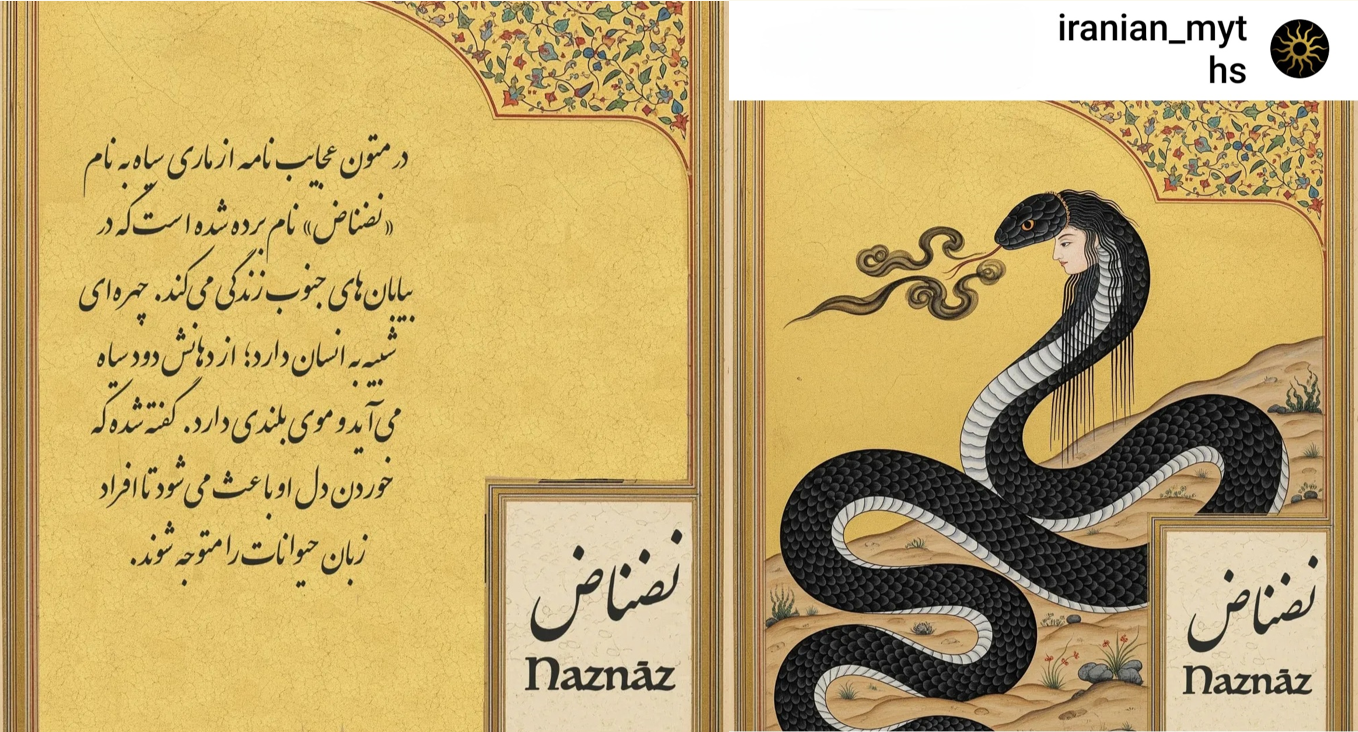 در متون عجایب نامه از ماری سیاه به نام
«نضناض» نام برده شده است که در
بیابان‌های جنوب زندگی می‌کند. چهره‌ای
شبیه به انسان دارد؛ از دهانش دود سیاه
می‌آید و موی بلندی دارد. گفته شده که
خوردن دل او باعث می‌شود تا افراد
زبان حیوانات را متوجه شوند.
نضناض
Naznāz
iranian_myt
hs
نضناض
Naznāz